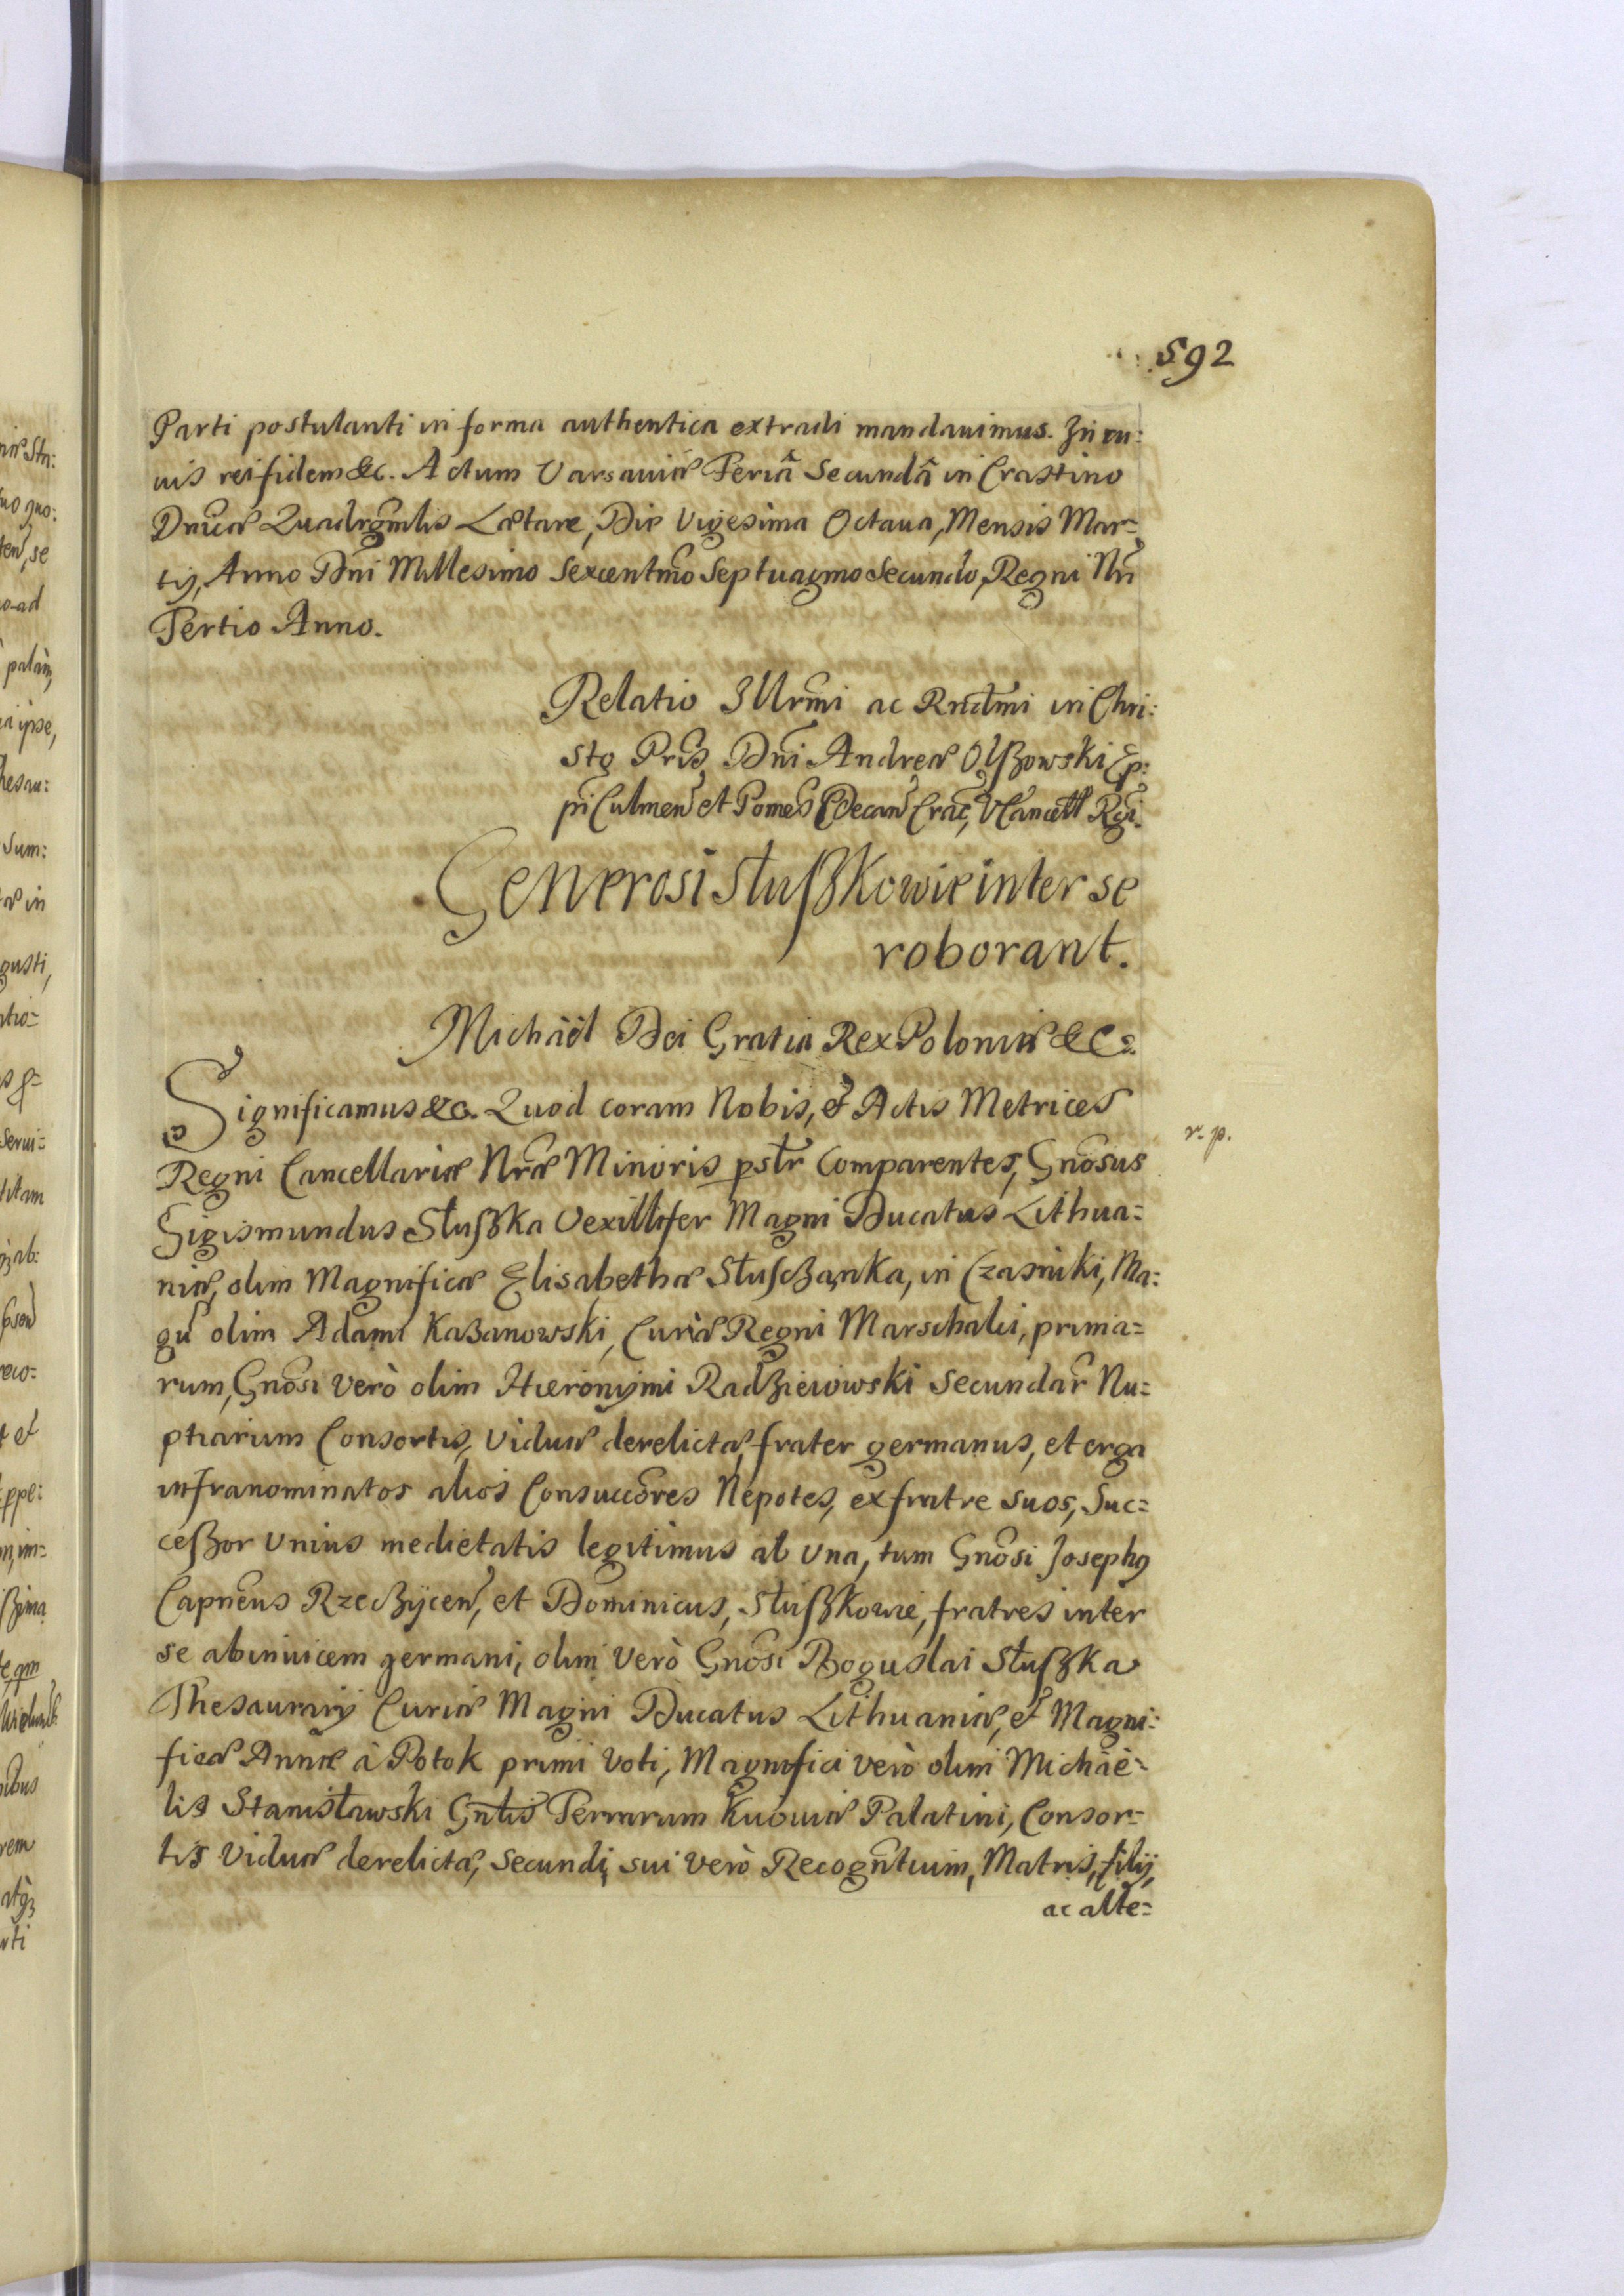 592
Parti postulanti in forma authentica extradi mandauimus. In cu:
uis rei fidem &c. Actum Varsauiæ Feriâ Secundâ in Crastino
Dnicæ Quadrgmlis Lætare, Die Vigesima Octaua, Mensis Mar=
tij, Anno Dni Millesimo Sexcentmo Septuagmo Secundo, Regni Nri
Tertio Anno.
Relatio Illrmi ac Rndmi in Chri:
sto Pris Dni Andreæ Olszowski Ep:
pi Culmen et Pomes Decan Crac, VCancell Rgi.
Generosi Słuszkowie inter se
roborant.
Michäel Dei Gratia Rex Poloniæ &c:
Significamus &c. Quod coram Nobis, et Actis Metrices
r. p.
Regni Cancellariæ Nræ Minoris pstr Comparentes, Gnosus
Sigismundus Słuszka Vexillifer Magni Ducatus Lithua=
niæ, olim Magnificæ Elisabethæ Słuschanka, in Czasniki, Ma:
gci olim Adami Kazanowski, Curiæ Regni Marschalci, prima=
rum, Gnosi verò olim Hieronymi Radzieiowski Secundar Nu=
ptiarum Consortis, Viduæ derelictæ, frater germanus, et erga
infranominatos alios Consuccores Nepotes, ex fratre suos, Suc=
ceszor Vnius medietatis legitimus ab Vna, tum Gnosi Josephg
Capneus Rzeczycen, et Dominicus, Słuszkowie, fratres inter
se abinuicem germani, olim Verò Gnosi Boguslai Słuszka
Thesaurarij Curiæ Magni Ducatus Lithuaniæ, et Magni:
ficæ Annæ à Potok primi Voti, Magnifici verò olim Michäe=
lis Stanisławski Gnlis Terrarum Kiiouiæ Palatini, Consor=
tis Viduæ derelictæ, Secundi, sui verò Recogntium, Matris, filij,
ac alte=